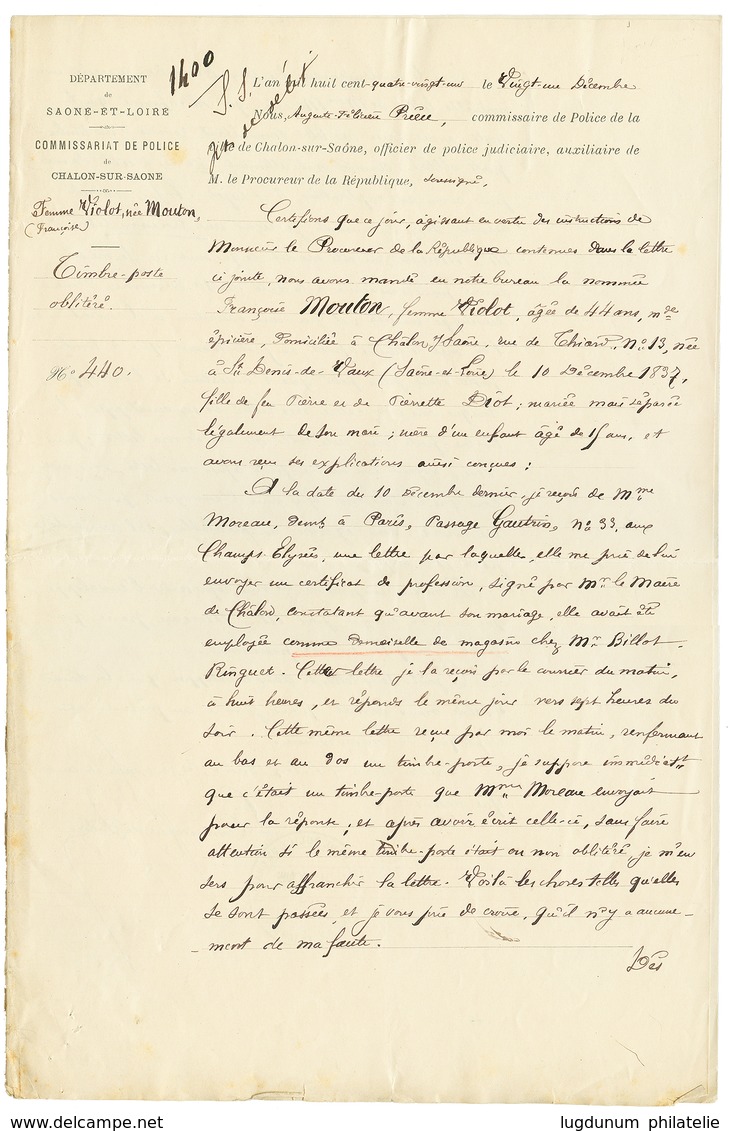 1h00
DÉPARTEMENT
de
SAONE-ET-LOIRE
COMMISSARIAT DE POLICE
de
CHALON-SUR-SAONE
Femme Violot, née Mouton,
(Françoise)
Timbre-poste
oblitéré.
No 440.
L'an mil huit cent quatre-vingt-un le Vingt-une Décembre
Nous, Auguste-Félicien commissaire de Police de la
ville de Chalon-sur-Saône, officier de police judiciaire, auxiliaire de
M. le Procureur de la République, soussigné,
Certifions que ce jour, agissant en vertu des instructions de
Monsieur le Procureur de la République contenues dans la lettre
ci jointe, nous avons mandé en notre bureau la nommée
Françoise Mouton, femme Violot, âgée de 44 ans, mde
épicière, domiciliée à Châlon s/Saône, rue de Thiard, No 13, née
à St Denis-de-Vaux (Saône-et-Loire) le 10 Décembre 1837,
fille de feu Pierre et de Pierrette Diot; mariée mais séparée
légalement de son mari; mère d'un enfant âgé de 15 ans, et
avons reçu ses explications ainsi conçues:
A la date du 10 Décembre dernier, je reçois de Mme
Moreau, demt à Paris, Passage Gautrin, no 33, aux
Champs-Elysées, une lettre par laquelle, elle me prie de lui
envoyer un certificat de profession, signé par Mr le Maire
de Châlon, constatant qu'avant son mariage, elle avait été
employée comme Demoiselle de magasin chez Mr Billot-
Ringuet. Cette lettre je la reçois par le courrier du matin,
à huit heures, et réponds le même jour vers sept heures du
soir. Cette même lettre reçue par moi le matin, renfermant
au bas et au dos un timbre-poste, je suppose immédiatt
que c'était un timbre-poste que Mme Moreau envoyait
pour la réponse; et après avoir écrit celle-ci, sans faire
attention si le même timbre-poste était ou non oblitéré, je m'en
sers pour affranchir la lettre. Voilà les choses telles qu'elles
se sont passées, et je vous prie de croire, qu'il n'y a aucune-
ment de ma faute.
Des
www.delcampe.net
lugdunum philatelie